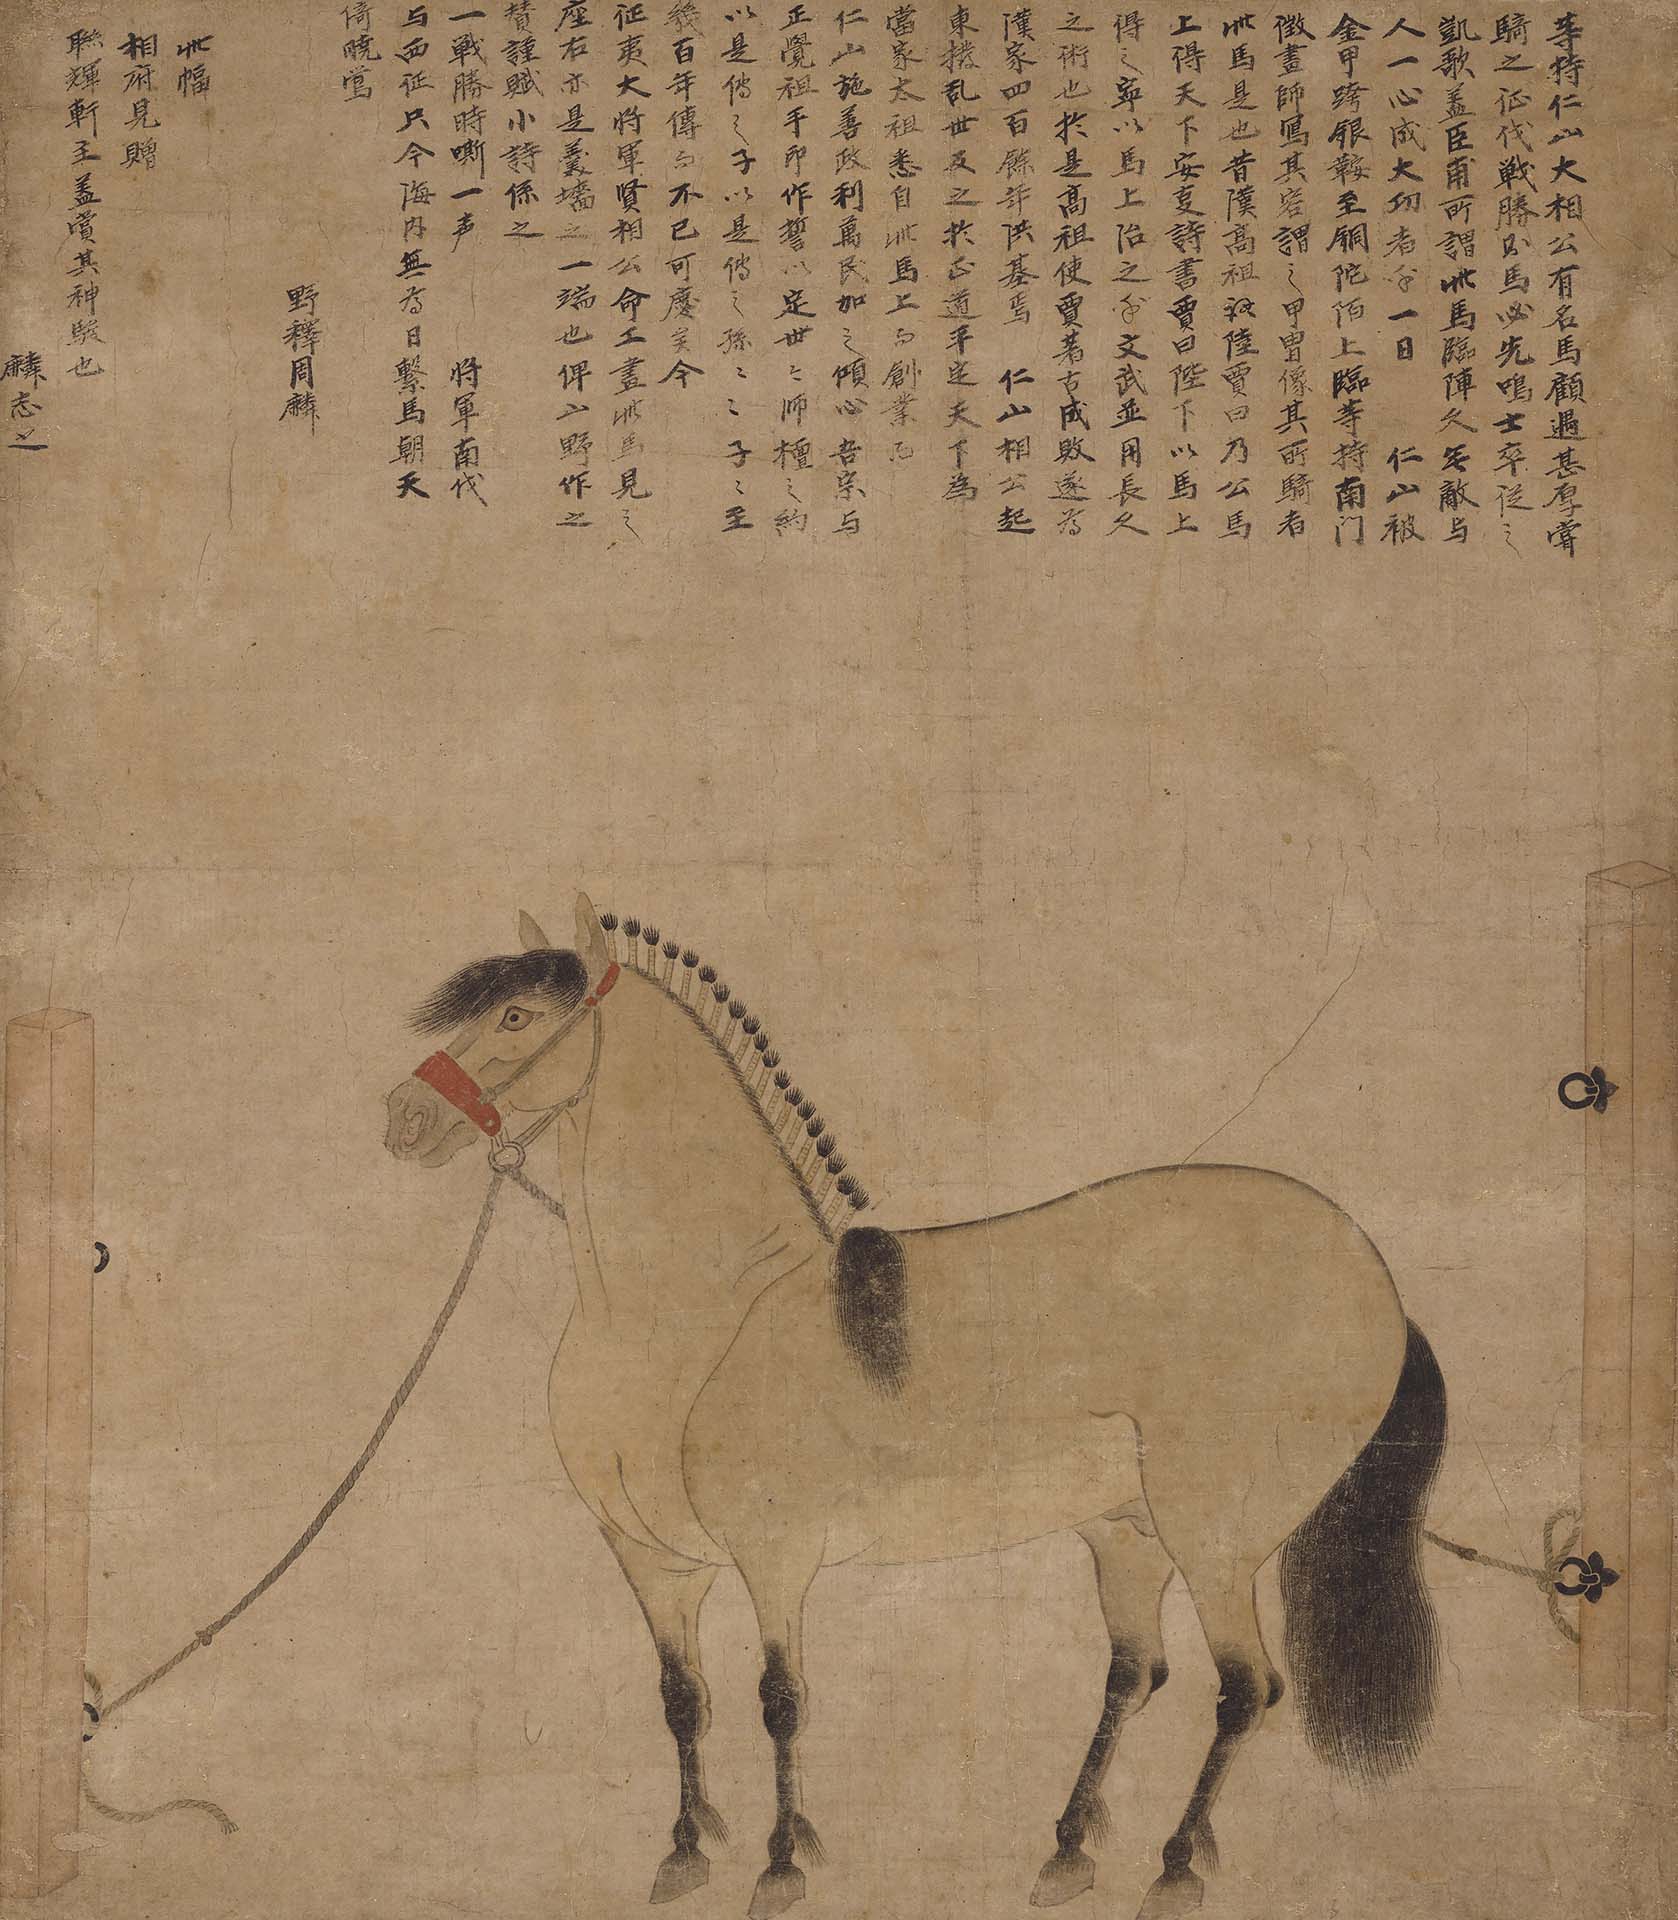 等持仁山大相公有名馬顧遇甚厚嘗
騎之征伐戦勝則馬必先鳴士卒従之
凱歌蓋臣甫所謂此馬臨陣久無敵与
人一心成大功者乎一日 仁山被
金甲跨銀鞍至銅陀陌上臨等持南門
徴畫師寫其容謂之甲冑像其所騎者
此馬是也昔漢高祖 陸賈曰乃公馬
上得天下安事詩書賈曰陛下以馬上
得之寧以馬上治之乎文武並用長久
之術也於是高祖使賈著古成敗遂為
漢家四百餘年洪基焉 仁山相公起
東撥乱世反之於正道平定天下為
當家太祖悉自此馬上而創業而
仁山施善政利萬民加之傾心吾宗与
正覺祖手印作誓以定世々師檀之約
以是傳之子以是傳之孫々々子々至
幾百年傳而不已可慶矣今
征夷大将軍賢相公命工畫此馬見之
座右亦是羹墻之一端也俾小野作之
賛謹賦小詩係之
一戦勝時嘶一声 将軍南伐
与西征只今海内無為日繋馬朝天
倚暁鶯
野釋周麟
此幅
相府見贈
聯輝軒主蓋賞其神駿也
麟志之